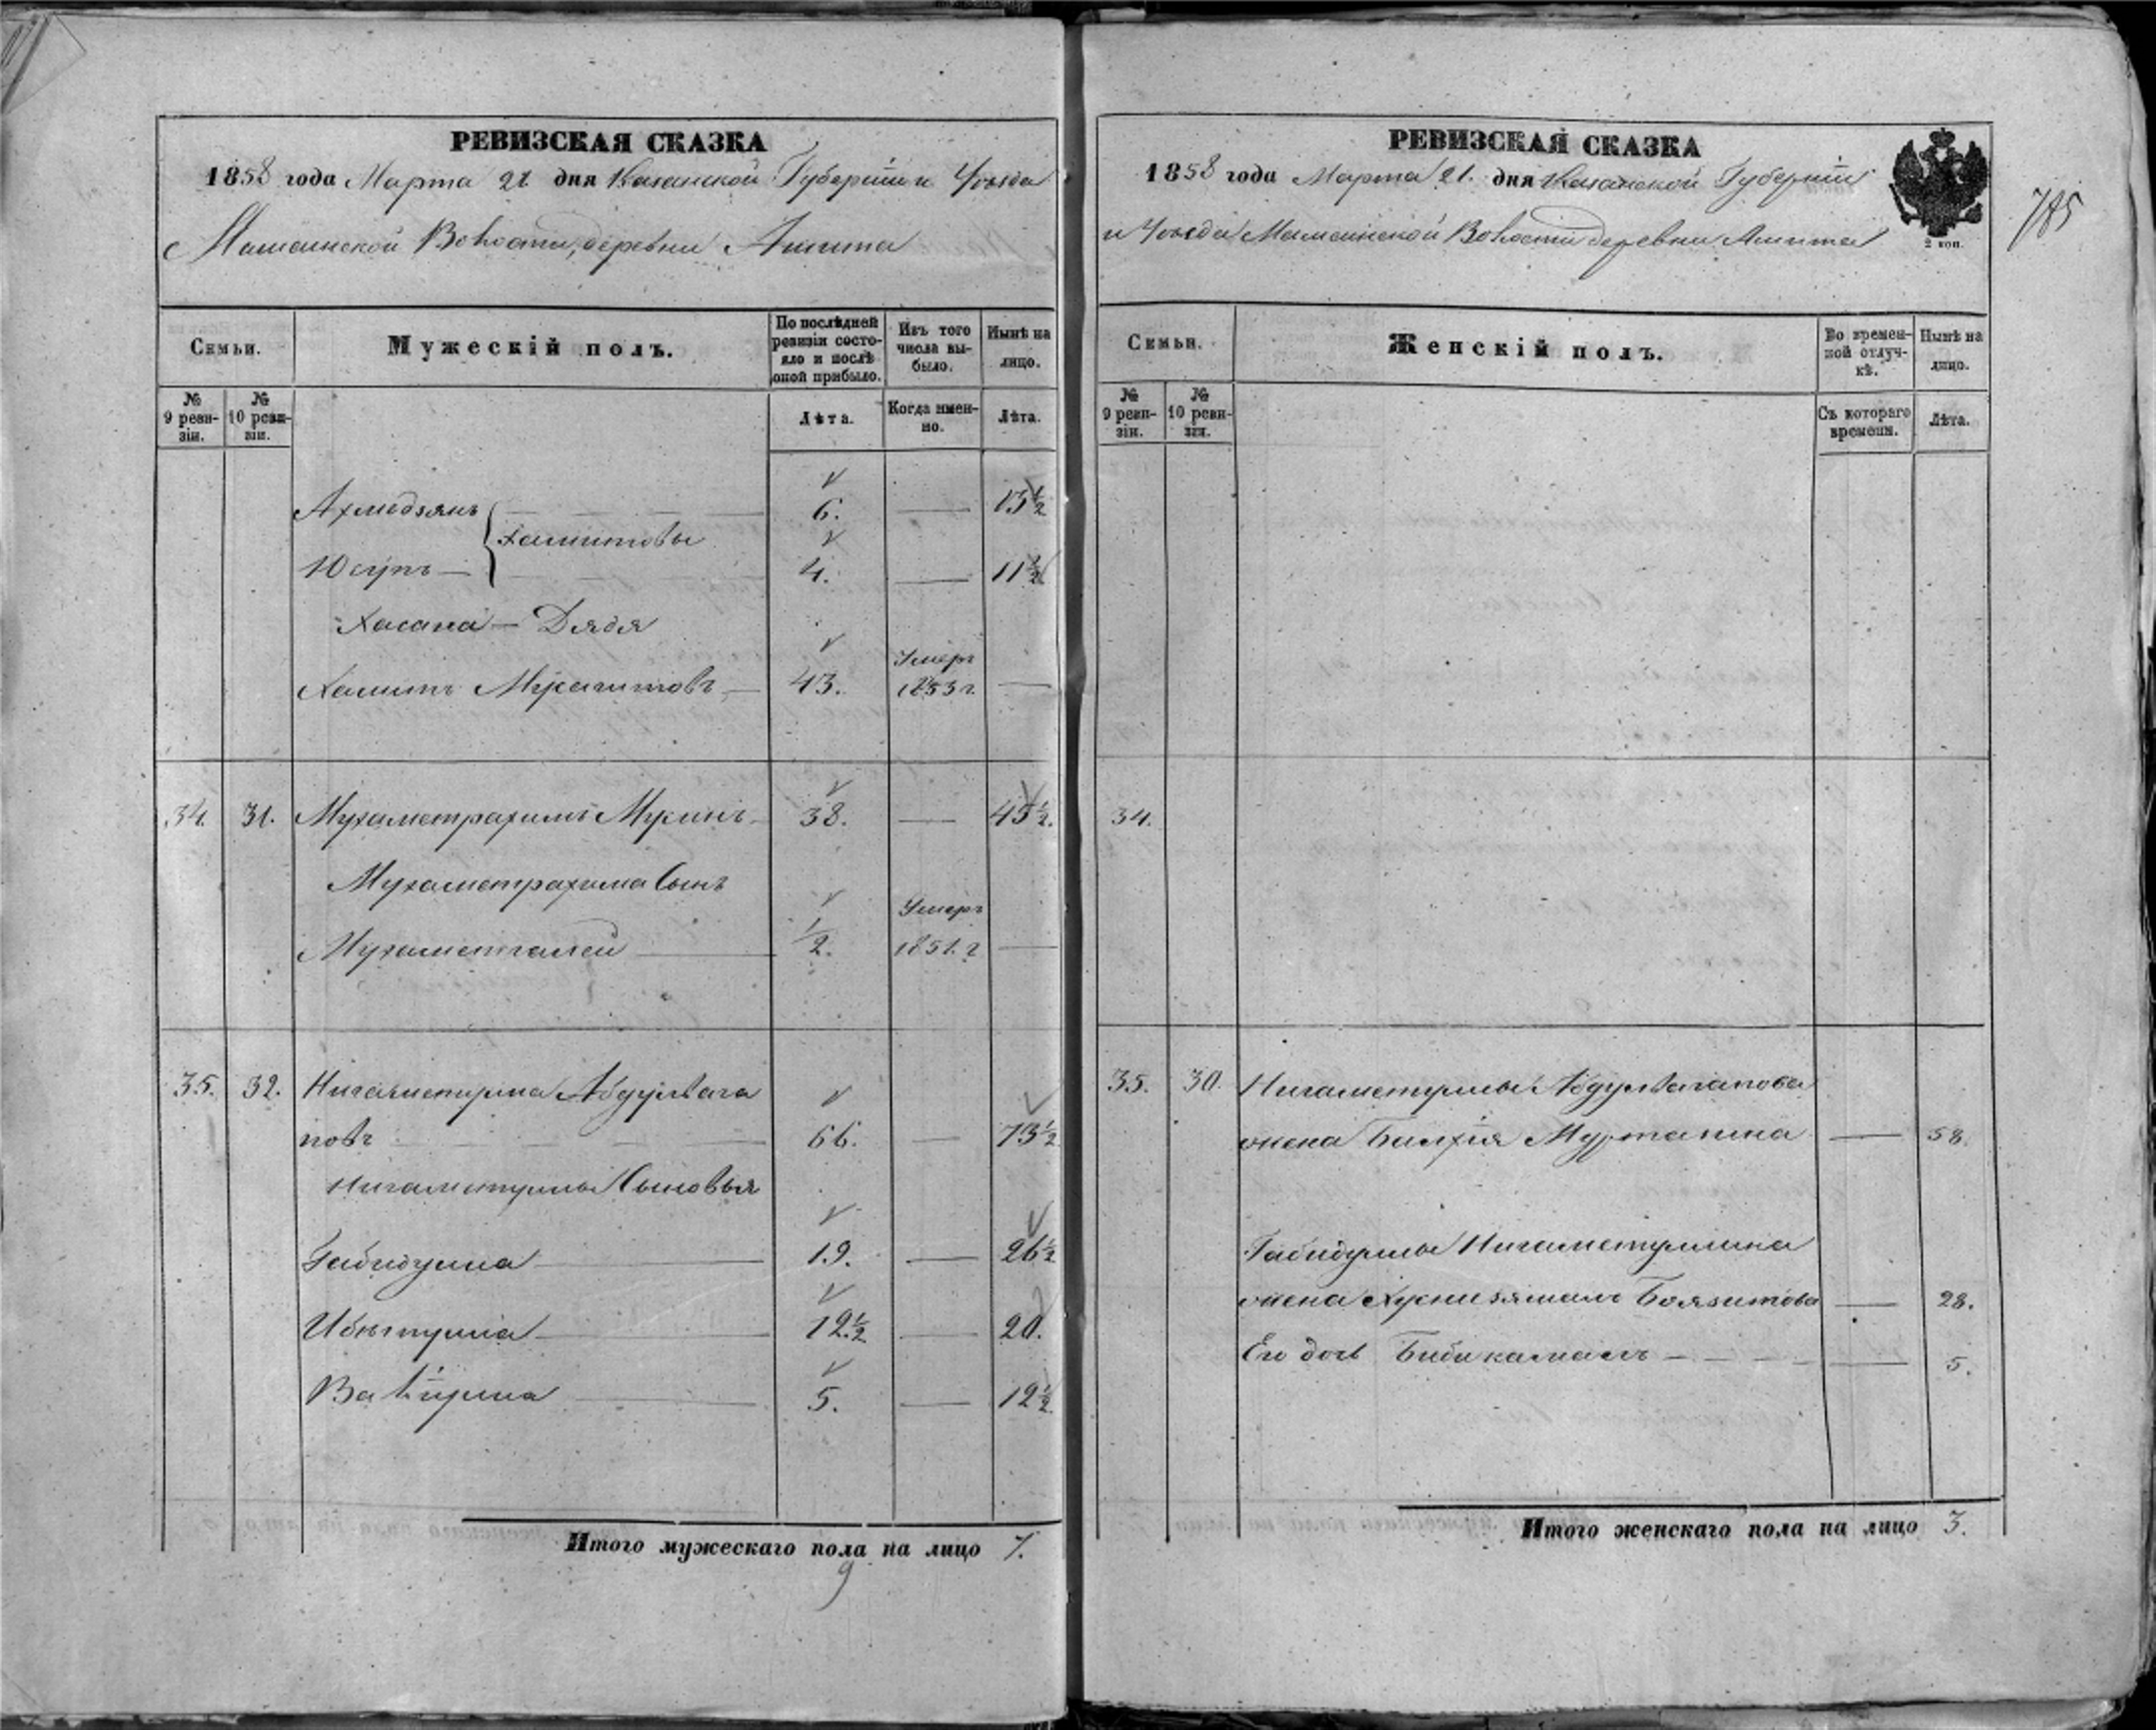 РЕВИЗСКАЯ СКАЗКА
1858 года Марта 21 дня Казанской Губернии и Уѣзда
Мамсинской Волости, деревни Ашита
Семьи.
Мужескій полъ.
По послѣдней ревизіи состояло и послѣ оной прибыло.
Изъ того числа выбыло.
Нынѣ на лицо.
№ 9 ревизіи.
№ 10 ревизіи.
Лѣта.
Когда именно.
Лѣта.
Ахмедзянъ 6. — 13 1/2
Хамитовы
Юсупъ — 4. — 11 1/2
Хасана — Дядя
Хамитъ 43. Умеръ 1853 г. —
34. 31. Мухаметрахимъ 38. — 45 1/2.
Мухаметрахима Сынъ
Мухаметгалей 1/2. Умеръ 1851. г —
35. 32. Нигаметулла Абдулвага
повъ 66. — 73 1/2
Нигаметуллы Сыновья
Габидулла 19. — 26 1/2
12 1/2 — 20.
5. — 12 1/2
Итого мужескаго пола на лицо 7.
9
РЕВИЗСКАЯ СКАЗКА
1858 года Марта 21. дня Казанской Губерніи
и Уѣзда Мамсинской Волости деревни Ашита
2 коп.
785
Семьи.
Женскій полъ.
Во временной отлучкѣ.
Нынѣ на лицо.
№ 9 ревизіи.
№ 10 ревизіи.
Съ котораго времени.
Лѣта.
34.
35. 30. Нигаметуллы Абдулвагапова
жена Муртазина — 58.
Габидуллы Нигаметуллина
жена Хуснизямалъ Боязитова — 28.
Его дочь Бибикамалъ — 5.
Итого женскаго пола на лицо 3.